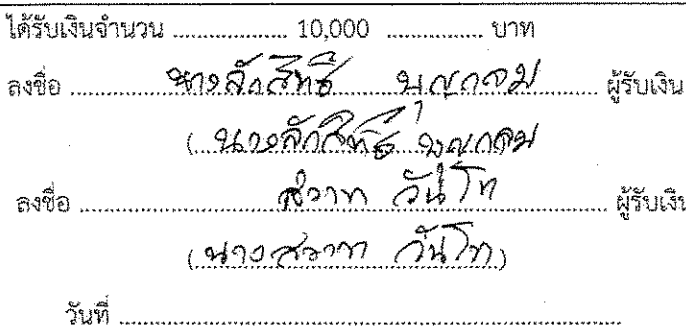 ได้รับเงินจำนวน ................. 10,000 ................ บาท
ลงชื่อ นางสักสิทธิ์ บุญกลม ผู้รับเงิน
(นางสักสิทธิ์ บุญกลม
ลงชื่อ สวาท วันโท ผู้รับเงิน
(นางสวาท วันโท)
วันที่ ................................................................